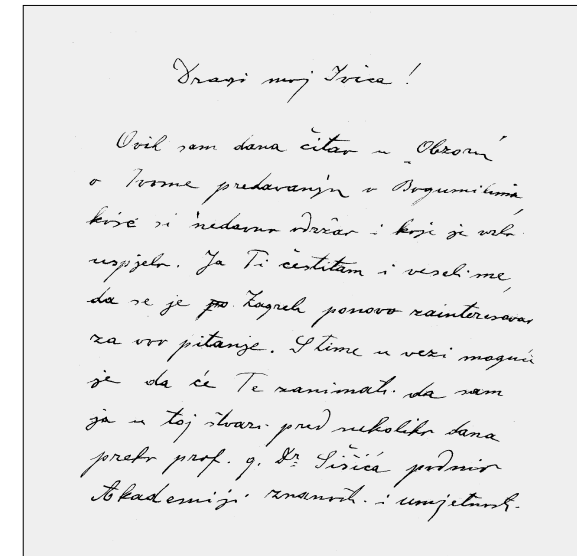 Dragi moj Ivica!
Ovih sam dana čitao u „Obzoru“
o Tvome predavanju o Bogumilima
koje si nedavno održao i koje je vrlo
uspjelo. Ja Ti čestitam i veseli me,
da se je Zagreb ponovo zainteresovao
za ovo pitanje. S time u vezi moguće
je da će Te zanimati da sam
ja u toj stvari pred nekoliko dana
preko prof. g. Dr. Šišića podnio
Akademiji znanosti i umjetnosti